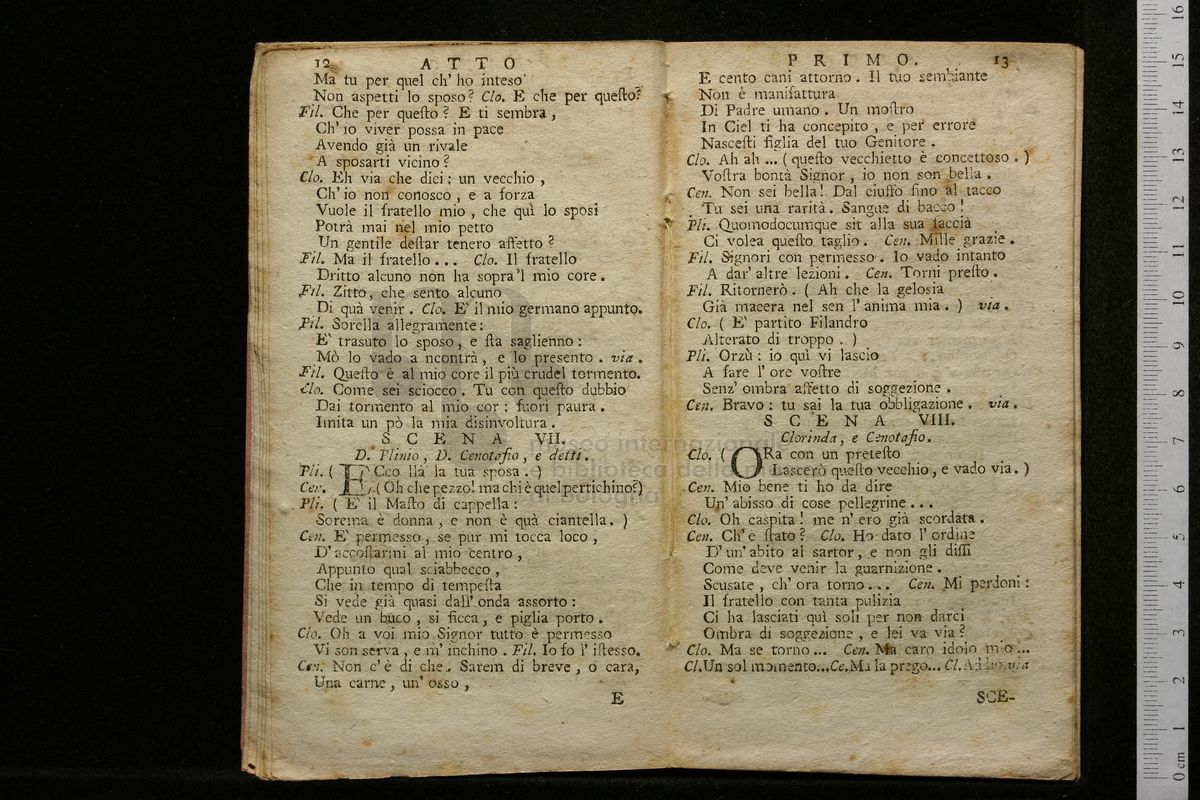 12 ATTO
Ma tu per quel ch' ho inteso
Non aspetti lo sposo? Clo. E che per queſto?
Fil. Che per queſto? E ti sembra,
Ch' io viver possa in pace
Avendo già un rivale
A sposarti vicino?
Clo. Eh via che dici: un vecchio,
Ch' io non conosco, e a forza
Vuole il fratello mio, che quì lo sposi
Potrà mai nel mio petto
Un gentile deſtar tenero affetto?
Fil. Ma il fratello... Clo. Il fratello
Dritto alcuno non ha sopra'l mio core.
Fil. Zitto, che sento alcuno
Di quà venir. Clo. E' il mio germano appunto.
Pli. Sorella allegramente:
E' trasuto lo sposo, e ſta saglienno:
Mò lo vado a ncontrà, e lo presento. via.
Fil. Queſto è al mio core il più crudel tormento.
Clo. Come sei sciocco. Tu con queſto dubbio
Dai tormento al mio cor: fuori paura.
Imita un pò la mia disinvoltura.
SCENA VII.
D. Plinio, D. Cenotafio, e detti.
Pli. (ECco llà la tua sposa.)
Cen. (Oh che pezzo! ma chi è quel pertichino?)
Pli. (E' il Maſto di cappella:
Sorema è donna, e non è quà ciantella.)
Cen. E' permesso, se pur mi tocca loco,
D' accoſtarmi al mio centro,
Appunto qual sciabbecco,
Che in tempo di tempeſta
Si vede già quasi dall' onda assorto:
Vede un buco, si ficca, e piglia porto.
Clo. Oh a voi mio Signor tutto è permesso
Vi son serva, e m' inchino. Fil. Io fo l' iſtesso.
Cen. Non c' è di che. Sarem di breve, o cara,
Una carne, un' osso,
E
PRIMO. 13
E cento cani attorno. Il tuo sembiante
Non è manifattura
Di Padre umano. Un moſtro
In Ciel ti ha concepito, e per errore
Nasceſti figlia del tuo Genitore.
Clo. Ah ah... (queſto vecchietto è concettoso.)
Voſtra bontà Signor, io non son bella.
Cen. Non sei bella! Dal ciuffo fino al tacco
Tu sei una rarità. Sangue di bacco!
Pli. Quomodocumque sit alla sua faccia
Ci volea queſto taglio. Cen. Mille grazie.
Fil. Signori con permesso. Io vado intanto
A dar' altre lezioni. Cen. Torni preſto.
Fil. Ritornerò. (Ah che la gelosia
Già macera nel sen l' anima mia.) via.
Clo. (E' partito Filandro
Alterato di troppo.)
Pli. Orzù: io quì vi lascio
A fare l' ore voſtre
Senz' ombra affetto di soggezione.
Cen. Bravo: tu sai la tua obbligazione. via.
SCENA VIII.
Clorinda, e Cenotafio.
Clo. (ORa con un preteſto
Lascerò queſto vecchio, e vado via.)
Cen. Mio bene ti ho da dire
Un' abisso di cose pellegrine...
Clo. Oh caspita! me n' ero già scordata.
Cen. Ch' è ſtato? Clo. Ho dato l' ordine
D' un' abito al sartor, e non gli dissi
Come deve venir la guarnizione.
Scusate, ch' ora torno... Cen. Mi perdoni:
Il fratello con tanta pulizia
Ci ha lasciati quì soli per non darci
Ombra di soggezione, e lei va via?
Clo. Ma se torno... Cen. Ma caro idolo mio...
Cl. Un sol momento... Ce. Ma la prego... Cl. Addio. via
SCE-
museo internazionale
biblioteca della
di bologna
0 cm 1 2 3 4 5 6 7 8 9 10 11 12 13 14 15 16